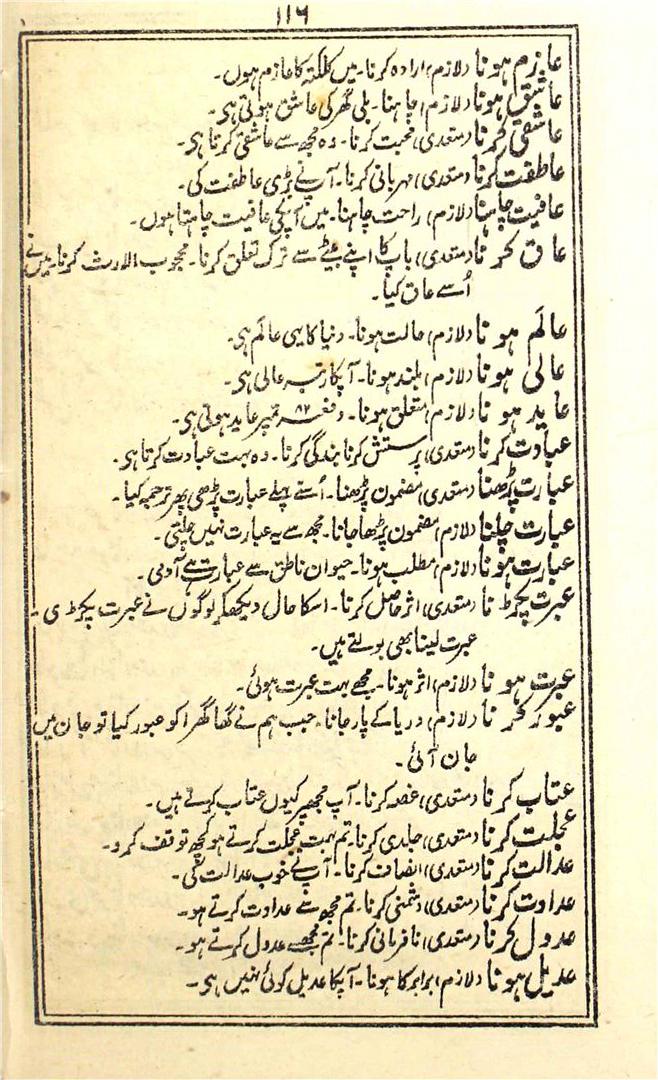 ۱۱۶
عازم ہونا (لازم) ارادہ کرنا۔ میں کلکتہ کا عازم ہوں۔
عاشق ہونا (لازم) چاہنا۔ بلی گھر کی عاشق ہوتی ہی۔
عاشقی کرنا (متعدی) محبت کرنا۔ وہ مجھ سے عاشقی کرتا ہی۔
عاطفت کرنا (متعدی) مہربانی کرنا۔ آپ نے بڑی عاطفت کی۔
عافیت چاہنا (لازم) راحت چاہنا۔ میں آپکی عافیت چاہتا ہوں۔
عاق کرنا (متعدی) باپ کا اپنے بیٹے سے ترک تعلق کرنا۔ محجوب الارث کرنا۔ میں نے
اُسے عاق کیا۔
عالَم ہونا (لازم) حالت ہونا۔ دنیا کا یہی عالَم ہی۔
عالی ہونا (لازم) بلند ہونا۔ آپکا رتبہ عالی ہی۔
عاید ہونا (لازم) متعلق ہونا۔ دفعہ نمبر ۸۲ عاید ہوتی ہی۔
عبادت کرنا (متعدی) پرستش کرنا بندگی کرنا۔ وہ بہت عبادت کرتا ہی۔
عبارت پڑھنا (متعدی) مضمون پڑھنا۔ اُسنے پہلے عبارت پڑھی پھر ترجمہ کیا۔
عبارت چلنا (لازم) مضمون پڑھا جانا۔ مجھ سے یہ عبارت نہیں چلتی۔
عبارت ہونا (لازم) مطلب ہونا۔ حیوان ناطق سے عبارت ہے آدمی۔
عبرت پکڑنا (متعدی) اثر حاصل کرنا۔ اسکا حال دیکھکر لوگوں نے عبرت پکڑی۔
عبرت لینا بھی بولتے ہیں۔
عبرت ہونا (لازم) اثر ہونا۔ مجھے بہت عبرت ہوئی۔
عبور کرنا (لازم) دریا کے پار جانا۔ جب ہم نے گھاگھرا کو عبور کیا تو جان میں
جان آئی۔
عتاب کرنا (متعدی) غصہ کرنا۔ آپ مجھپر کیوں عتاب کرتے ہیں۔
عجلت کرنا (متعدی) جلدی کرنا۔ تم بہت عجلت کرتے ہو کچھ توقف کرو۔
عدالت کرنا (متعدی) انصاف کرنا۔ آپ نے خوب عدالت کی۔
عداوت کرنا (متعدی) دشمنی کرنا۔ تم مجھ سے عداوت کرتے ہو۔
عدول کرنا (متعدی) نافرمانی کرنا۔ تم مجھسے عدول کرتے ہو۔
عدیل ہونا (لازم) برابر کا ہونا۔ آپکا عدیل کوئی نہیں ہی۔